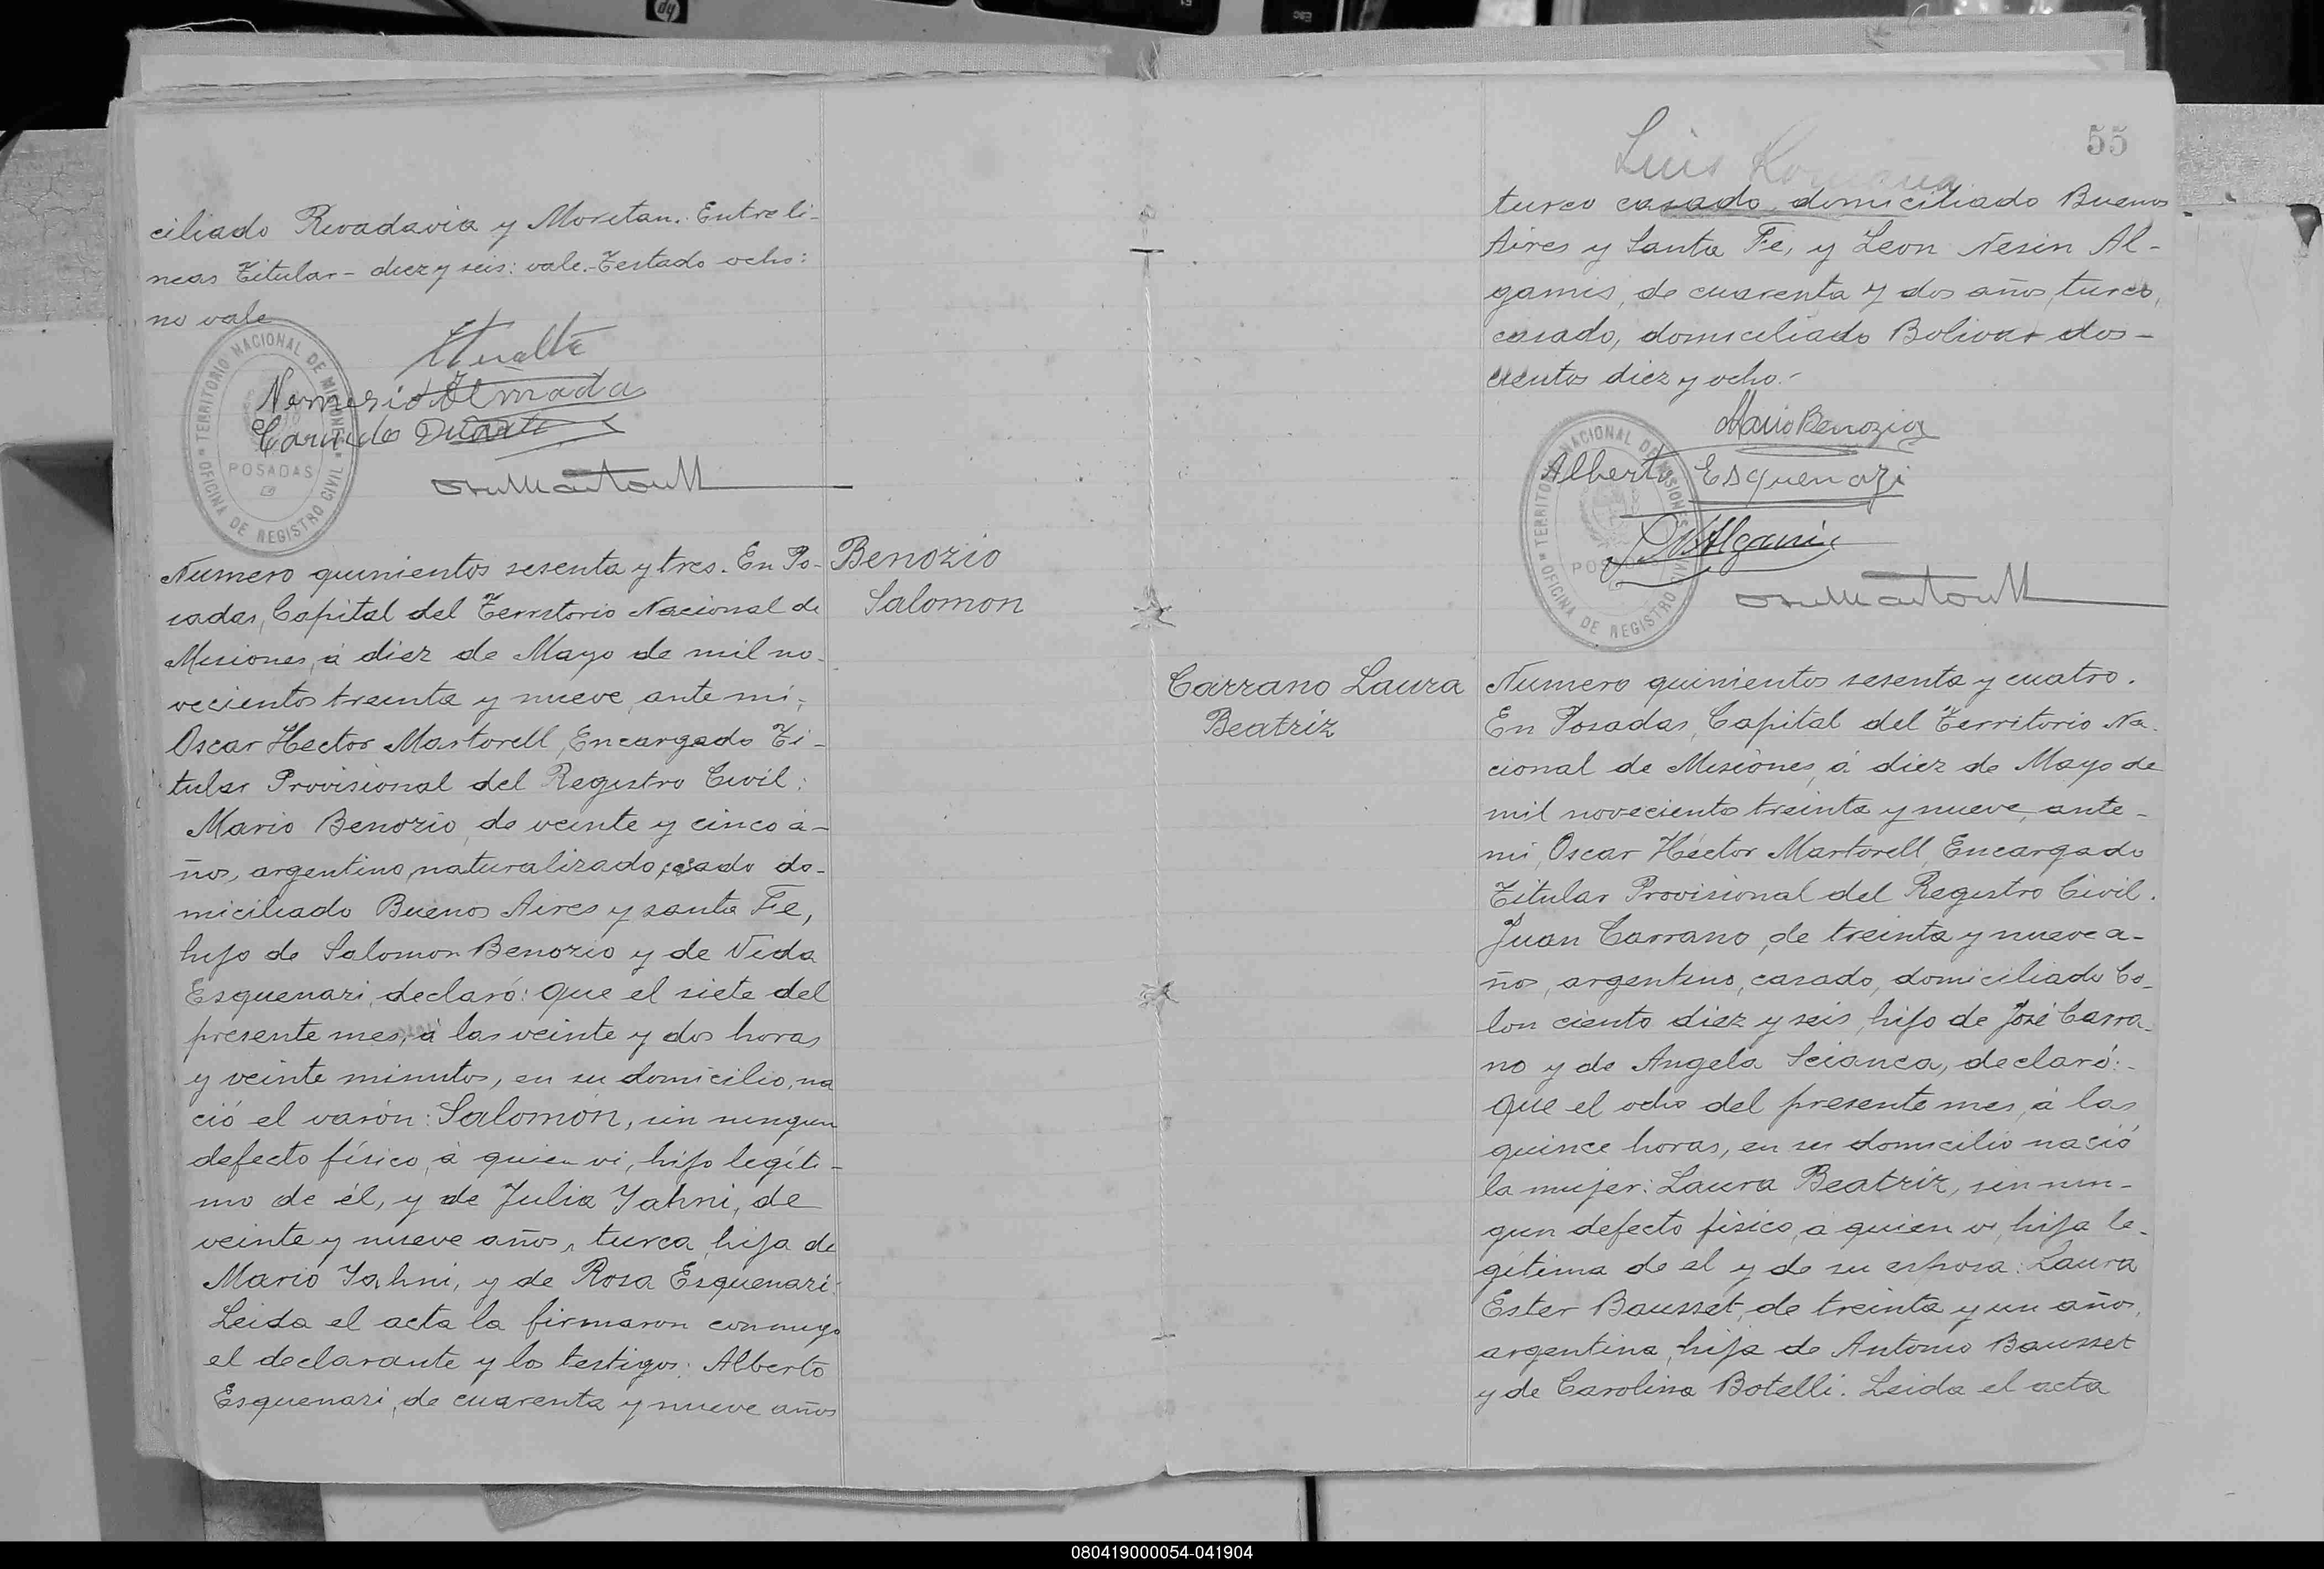 ciliado Rivadavia y Moritan. Entre li-
neas Titular - diez y seis: vale.- Testado ocho:
no vale
Nemesio Almada
Duarte
TERRITORIO NACIONAL DE MISIONES
POSADAS
OFICINA DE REGISTRO CIVIL
Numero quinientos sesenta y tres. En Po-
sadas, Capital del Territorio Nacional de
Misiones, á diez de Mayo de mil no-
vecientos treinta y nueve, ante mi,
Oscar Hector Martorell, Encargado Ti-
tular Provisional del Registro Civil:
Mario Benozio, de veinte y cinco a-
ños, argentino, naturalizado, casado do-
miciliado Buenos Aires y santa Fe,
hijo de Salomon Benozio y de Vida
Esquenazi, declaró: Que el siete del
presente mes, á las veinte y dos horas
y veinte minutos, en su domicilio, na
ció el varón: Salomón, sin ningun
defecto físico, á quien vi, hijo legíti-
mo de él, y de Julia Yahni, de
veinte y nueve años, turca, hija de
Mario Yahni, y de Rosa Esquenazi:
Leida el acta la firmaron conmigo
el declarante y los testigos: Alberto
Esquenazi, de cuarenta y nueve años
Benozio
Salomon
55
Luis
turco casado domiciliado Buenos
Aires y Santa Fe, y Leon Nesin Al-
gamis, de cuarenta y dos años, turco,
casado, domiciliado Bolivar dos-
cientos diez y ocho.-
Mario Benozio
Alberto Esquenazi
TERRITORIO NACIONAL DE MISIONES
POSADAS
OFICINA DE REGISTRO CIVIL
Carrano Laura
Beatriz
Numero quinientos sesenta y cuatro.
En Posadas, Capital del Territorio Na-
cional de Misiones, á diez de Mayo de
mil novecientos treinta y nueve, ante-
mi, Oscar Héctor Martorell, Encargado
Titular Provisional del Registro Civil.
Juan Carrano, de treinta y nueve a-
ños, argentino, casado, domiciliado Co-
lon ciento diez y seis, hijo de José Carra-
no y de Angela Scianca, declaró:-
Que el ocho del presente mes, á las
quince horas, en su domicilio nació
la mujer: Laura Beatriz, sin nin-
gun defecto físico, a quien vi, hija le-
gítima de el y de su esposa: Laura
Ester Bausset, de treinta y un años,
argentina, hija de Antonio Bausset
y de Carolina Botelli. Leida el acta
080419000054-041904